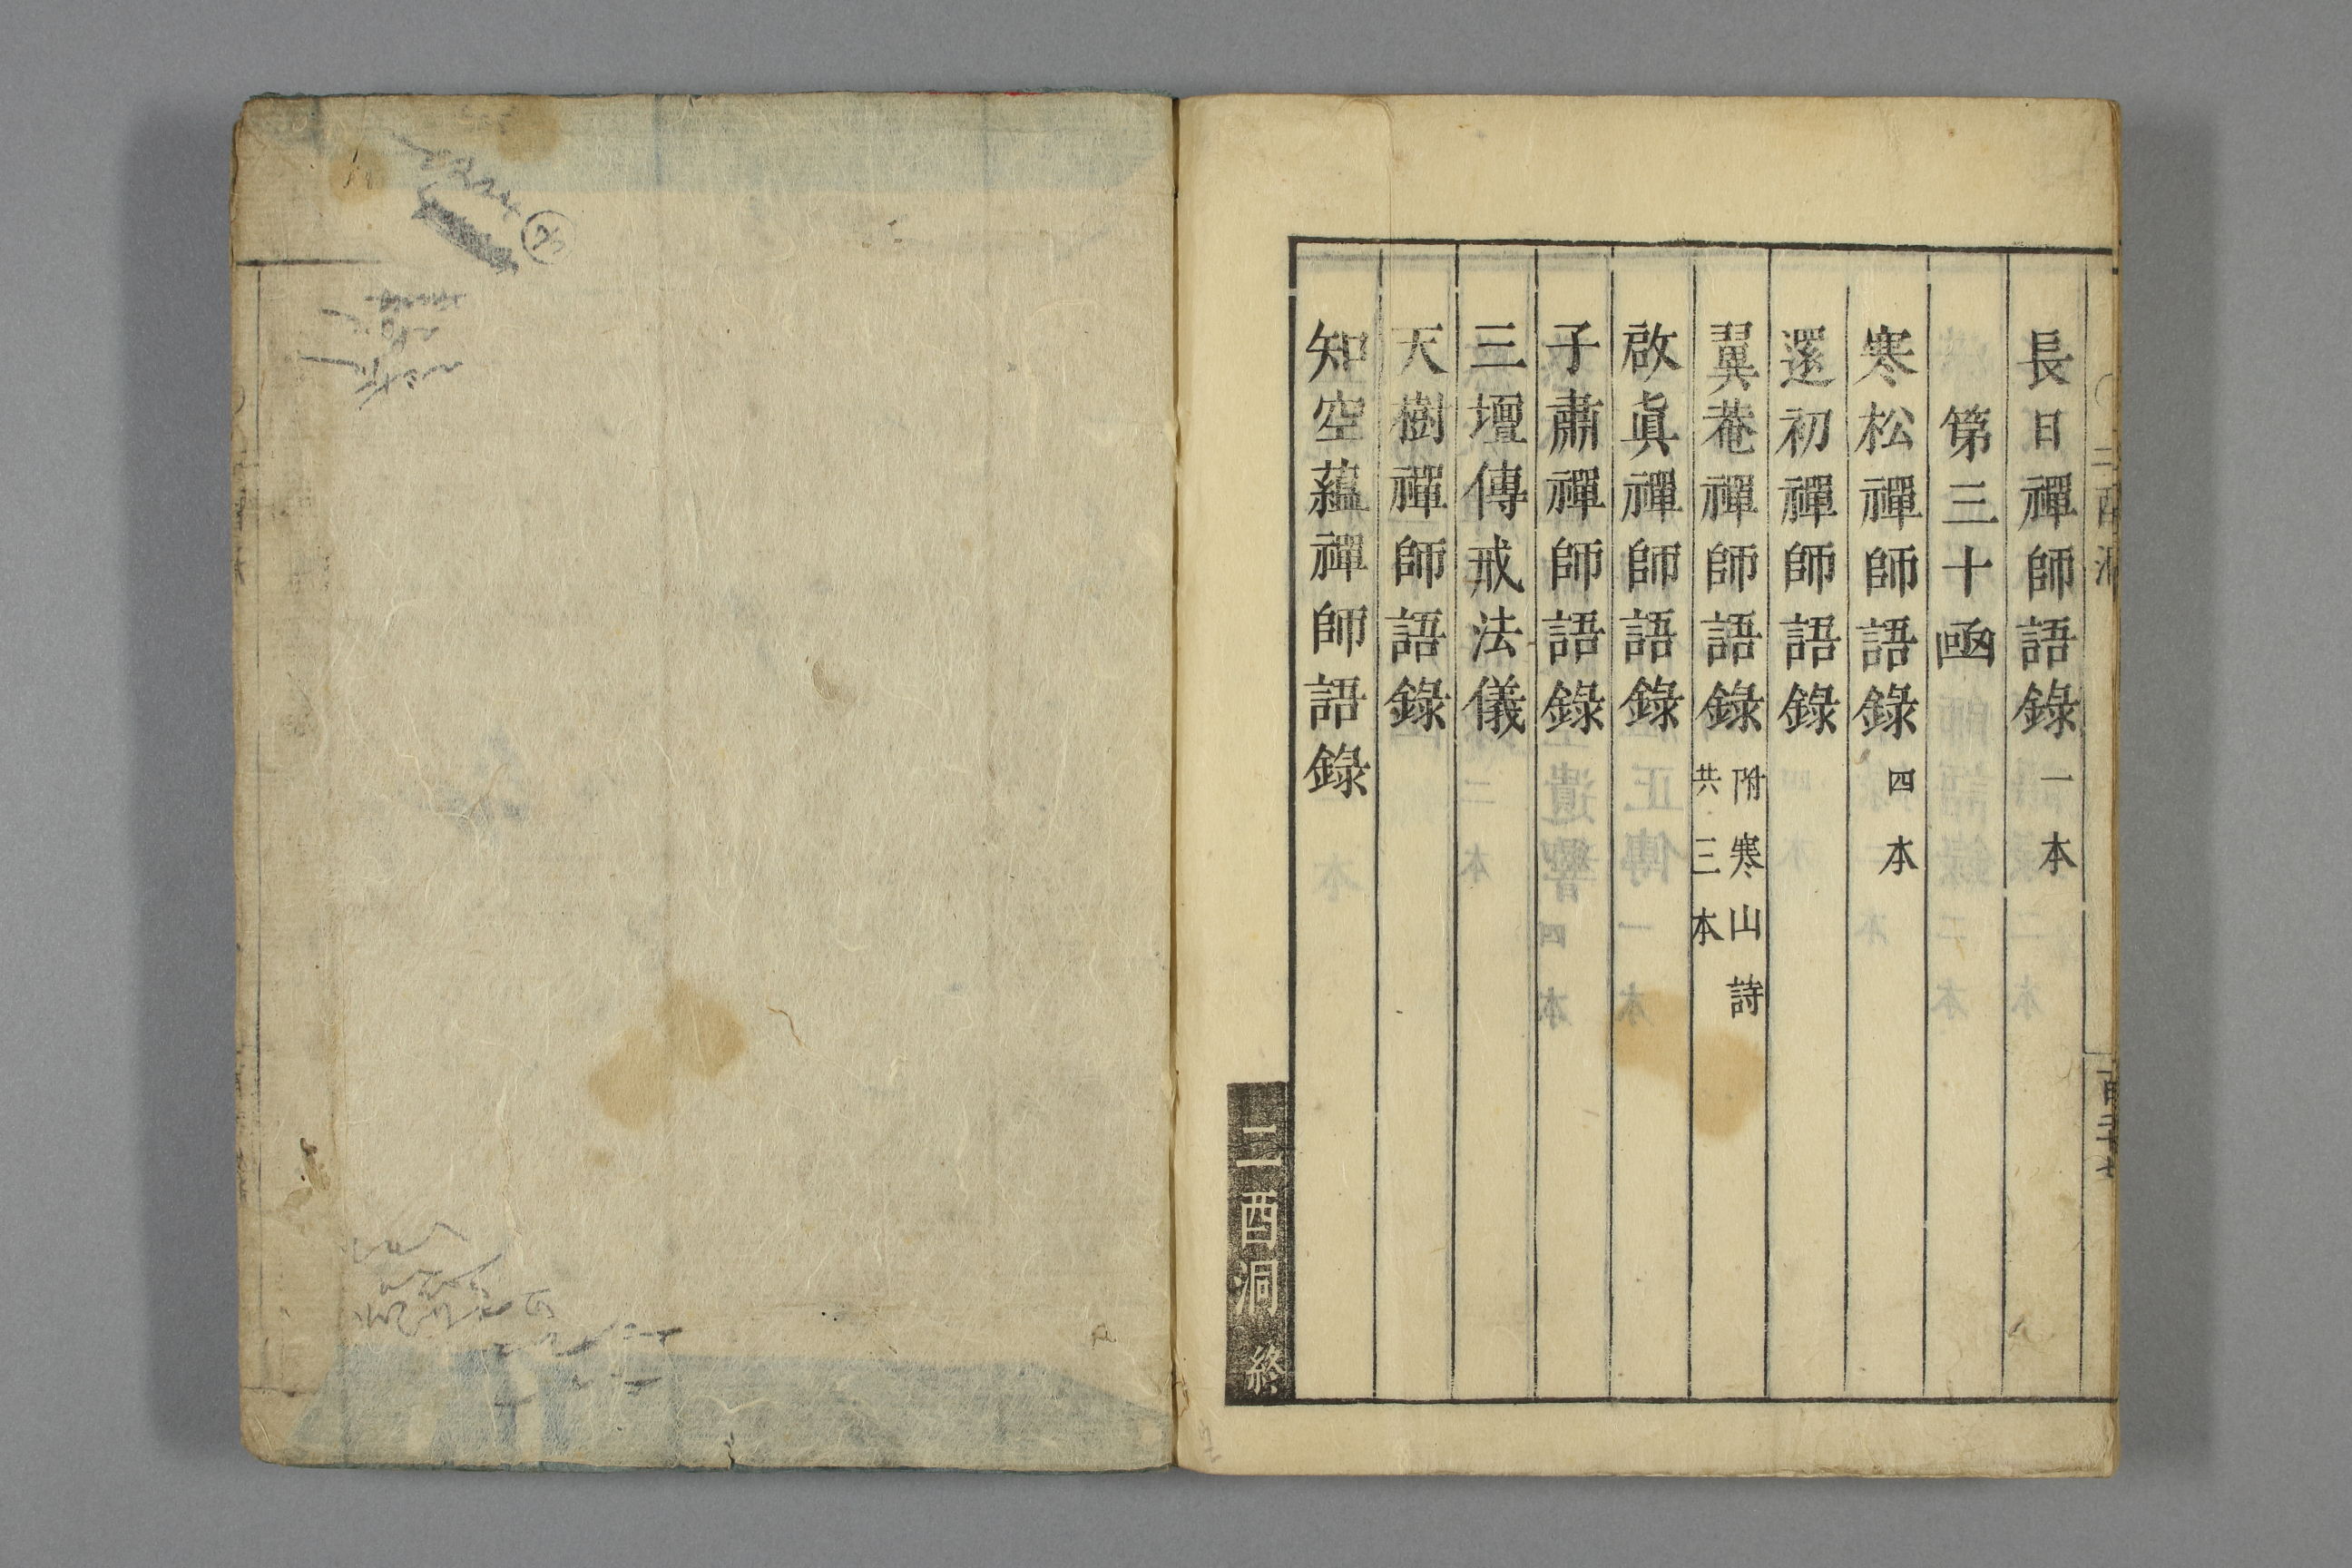 二酉洞
百三十七
長日禪師語錄 一本
第三十凾
寒松禪師語錄 四本
還初禪師語錄
翼菴禪師語錄 附寒山詩
共三本
啟眞禪師語錄
子肅禪師語錄
三壇傳戒法儀
天樹禪師語錄
知空蘊禪師語錄
二酉洞 終